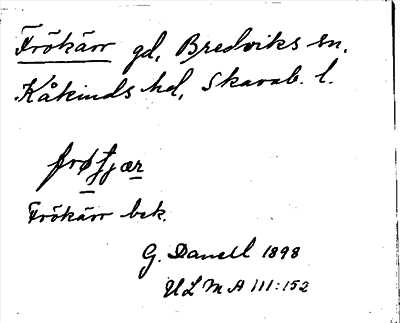 Frökärr gd, Bredviks sn,
Kåkinds hd, Skarab. l.
frøfjær
Frökärr bek.
G. Danell 1898
ULMA 111:152